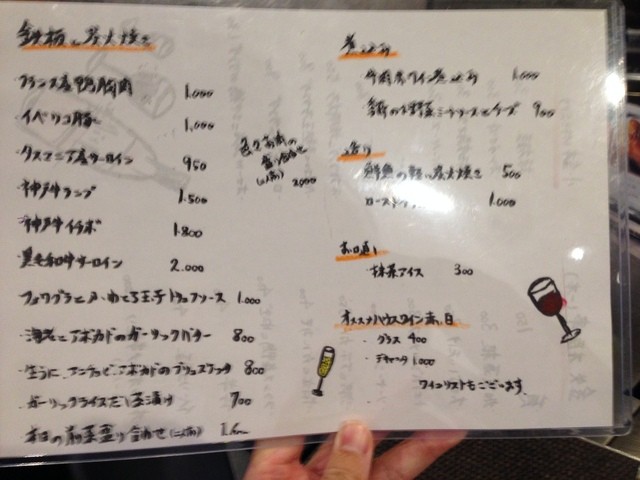 鉄板と炭火焼き
・フランス産鴨胸肉 1.000
・イベリコ豚 1.000
・タスマニア産サーロイン 950
・神戸牛ランプ 1.500
・神戸牛イチボ 1.800
・黒毛和牛サーロイン 2.000
・フォワグラと トリュフソース 1.000
・海老とアボカドのガーリックバター 800
・生うに、アンチョビ、アボカドのブルスケッタ 800
・ガーリックライスだし茶漬け 700
・本日の前菜盛り合わせ(二人前)
色々お肉の
盛り合わせ
(二人前)
3000
煮込み
牛肉赤ワイン煮込み 1.000
野菜ミートソースとチーズ 900
造り
鮮魚の軽い炭火焼き 500
ロースト 1.000
お口直し
・抹茶アイス 300
オススメハウスワイン赤、白
・グラス 400
・デキャンタ 1.000
ワインリストもございます。